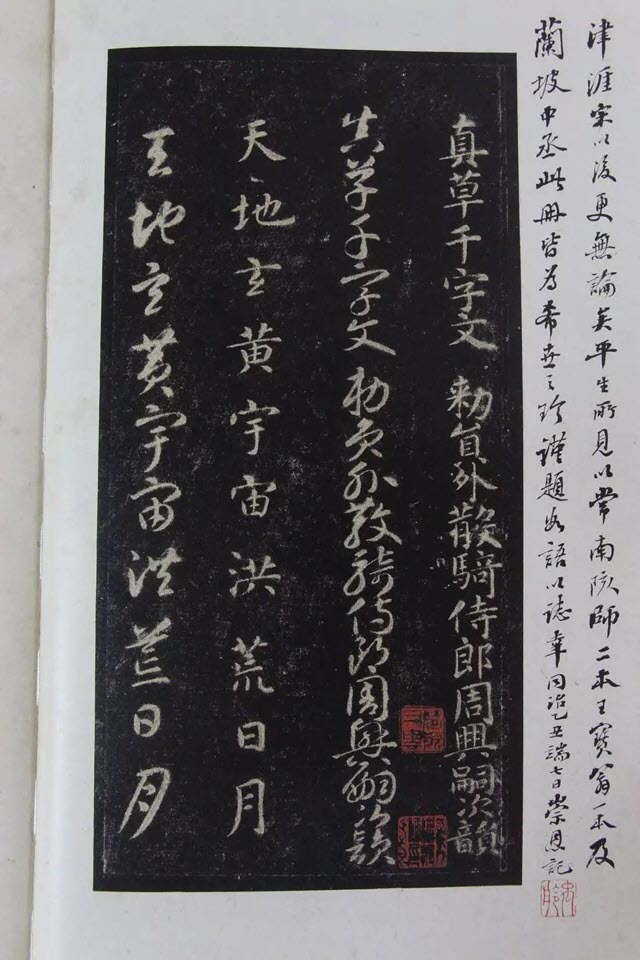 津涯宋以後更無論矣平生所見以常南陔師二本王寶翁一本及
蘭坡中丞此冊皆為希世之珍謹題數語以誌幸同治乙丑端七日崇恩記
真草千字文 勑員外散騎侍郎周興嗣次韻
真草千字文勑員外散騎侍郎周興嗣次韻
天地玄黃宇宙洪荒日月
天地玄黃宇宙洪荒日月